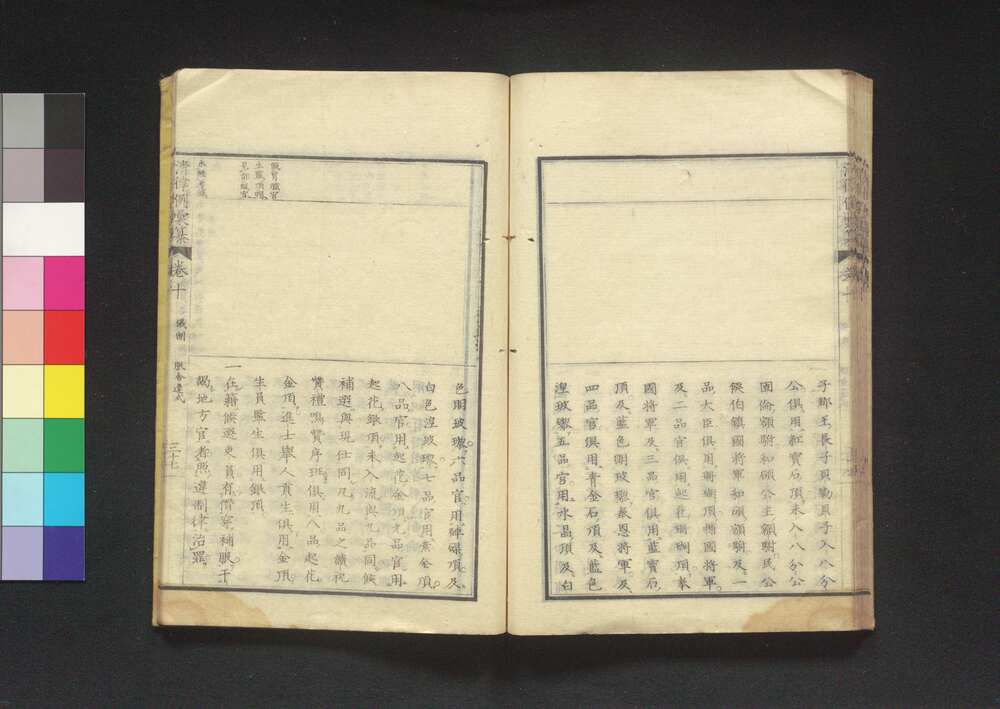 子郡王長子貝勒貝子入八分
公俱用紅寶石頂未入八分公
固倫額駙和碩公主額駙民公
侯伯鎮國將軍和碩額駙及一
品大臣俱用珊瑚頂輔國將軍
及二品官俱用起花珊瑚頂奉
國將軍及三品官俱用藍寶石
頂及藍色明玻璃奉恩將軍及
四品官俱用青金石頂及藍色
涅玻璃五品官用水晶頂及白
色明玻璃六品官用硨磲頂及
白色涅玻璃七品官用素金頂
八品官用起花金頂九品官用
起花銀頂未入流與九品同候
補選與現仕同凡九品之贊祝
贊禮鳴贊序班俱用八品起花
金頂進士舉人貢生俱用金頂
生員監生俱用銀頂
一在籍候選吏員有僭穿補服干
謁地方官者照違制律治罪
卷十
儀制
服舍違式
三十七